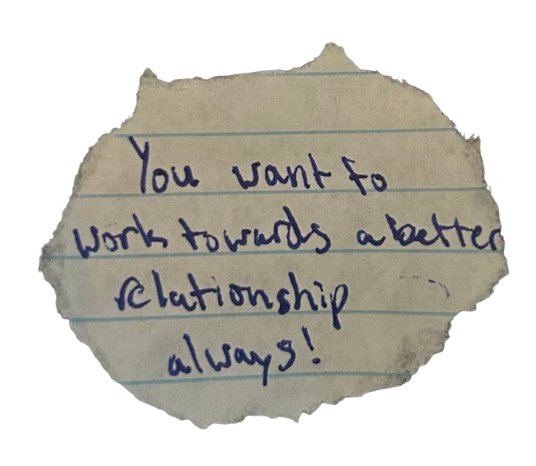 You want to
work towards a better
relationship
always!